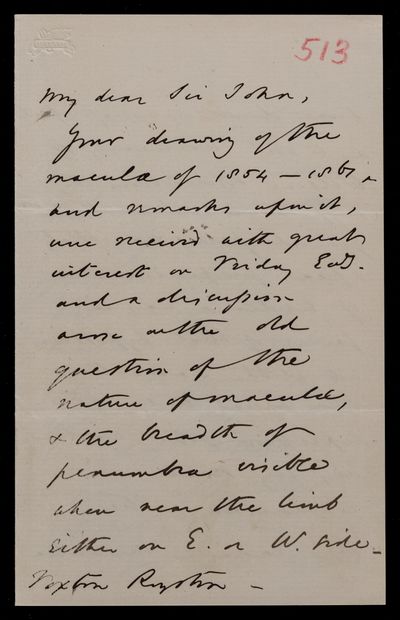 513
My dear Sir John,
Your drawing of the
maculæ of 1854 – 1861,
and remarks upon it,
were received with great
interest on Friday Evg.
and a discussion
arose on the old
question of the
nature of maculæ,
& the breadth of
penumbra visible
when near the limb
either on E. or W. side.
Royston –